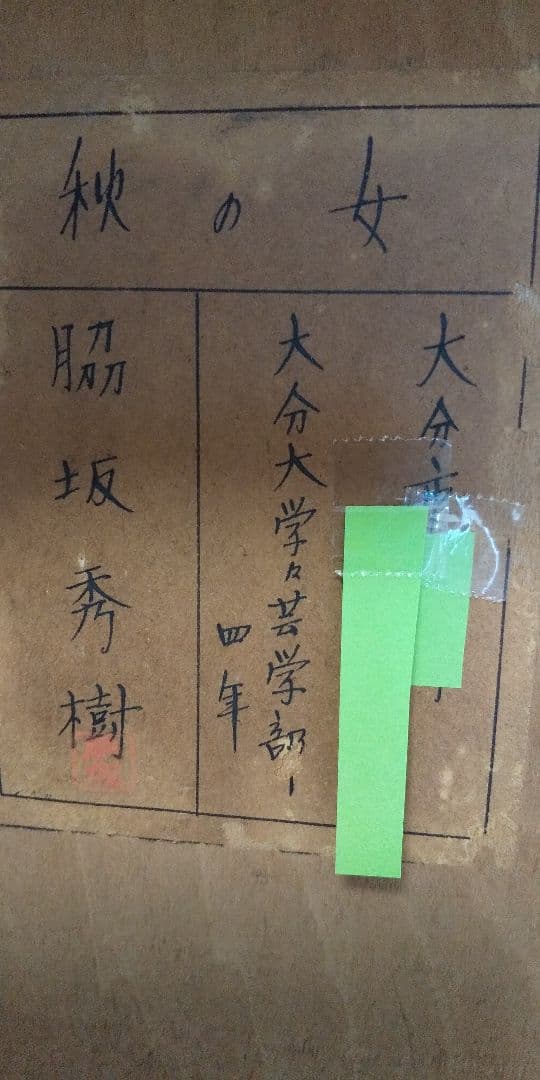 秋の女
大分市
大分大学々芸学部一
四年
脇坂秀樹